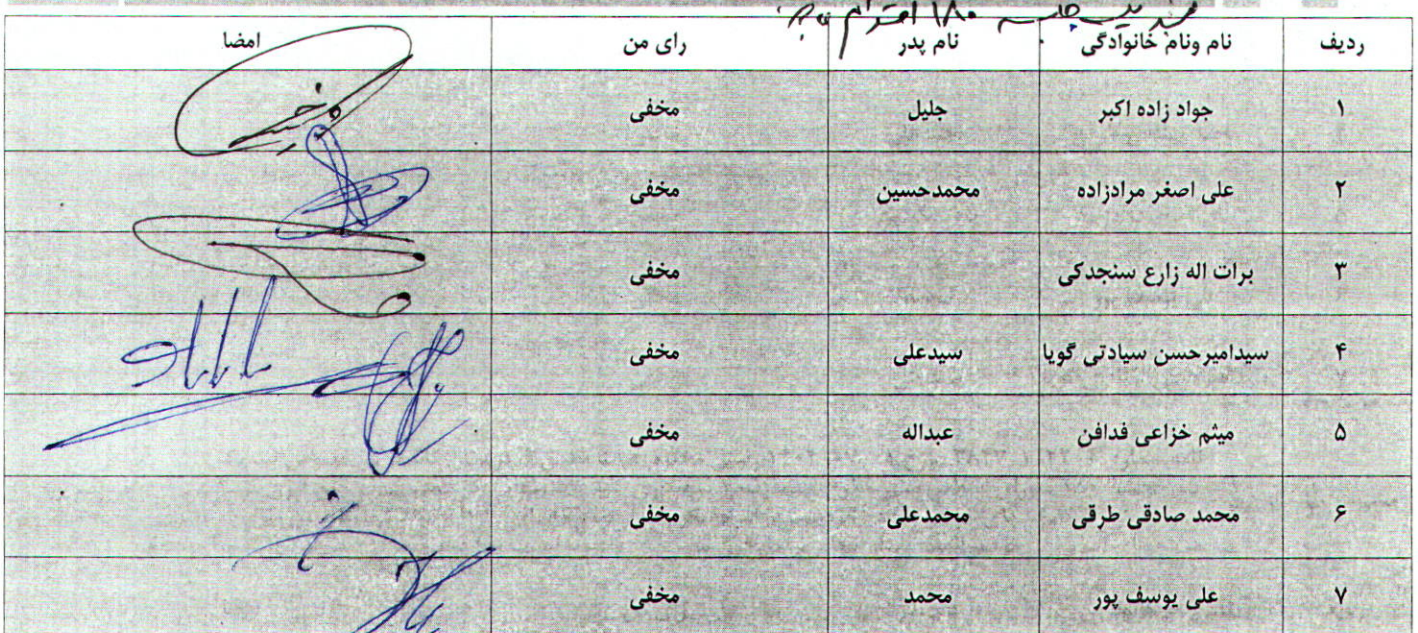 ردیف نام ونام خانوادگی نام پدر رای من امضا
۱ جواد زاده اکبر جلیل مخفی
۲ علی اصغر مرادزاده محمدحسین مخفی
۳ برات اله زارع سنجدکی مخفی
۴ سیدامیرحسن سیادتی گویا سیدعلی مخفی
۵ میثم خزاعی فدافن عبداله مخفی
۶ محمد صادقی طرقی محمدعلی مخفی
۷ علی یوسف پور محمد مخفی